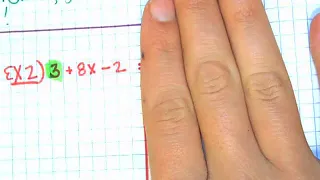 3X2) 3 + 8x - 2 =